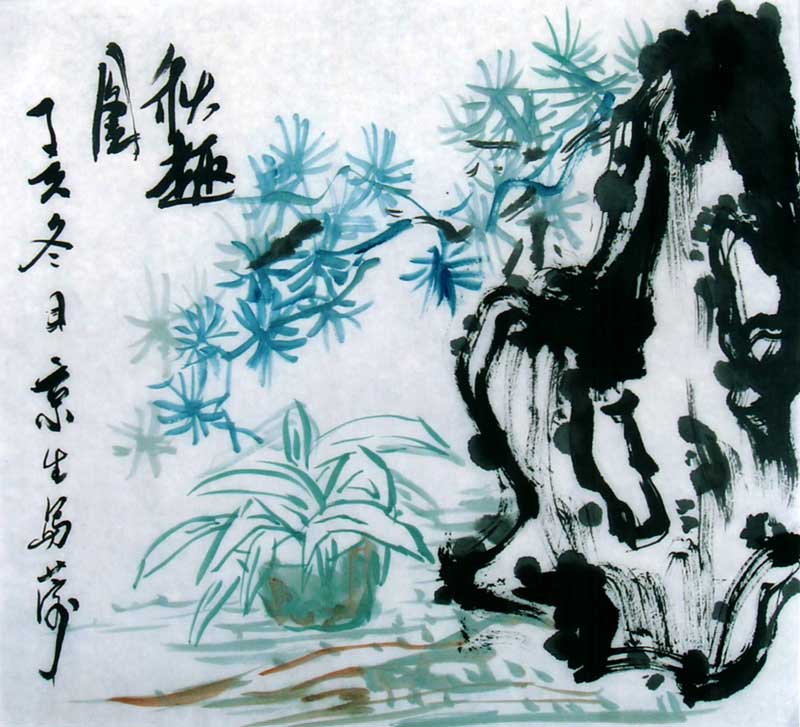 秋趣
图
丁亥冬月京生写